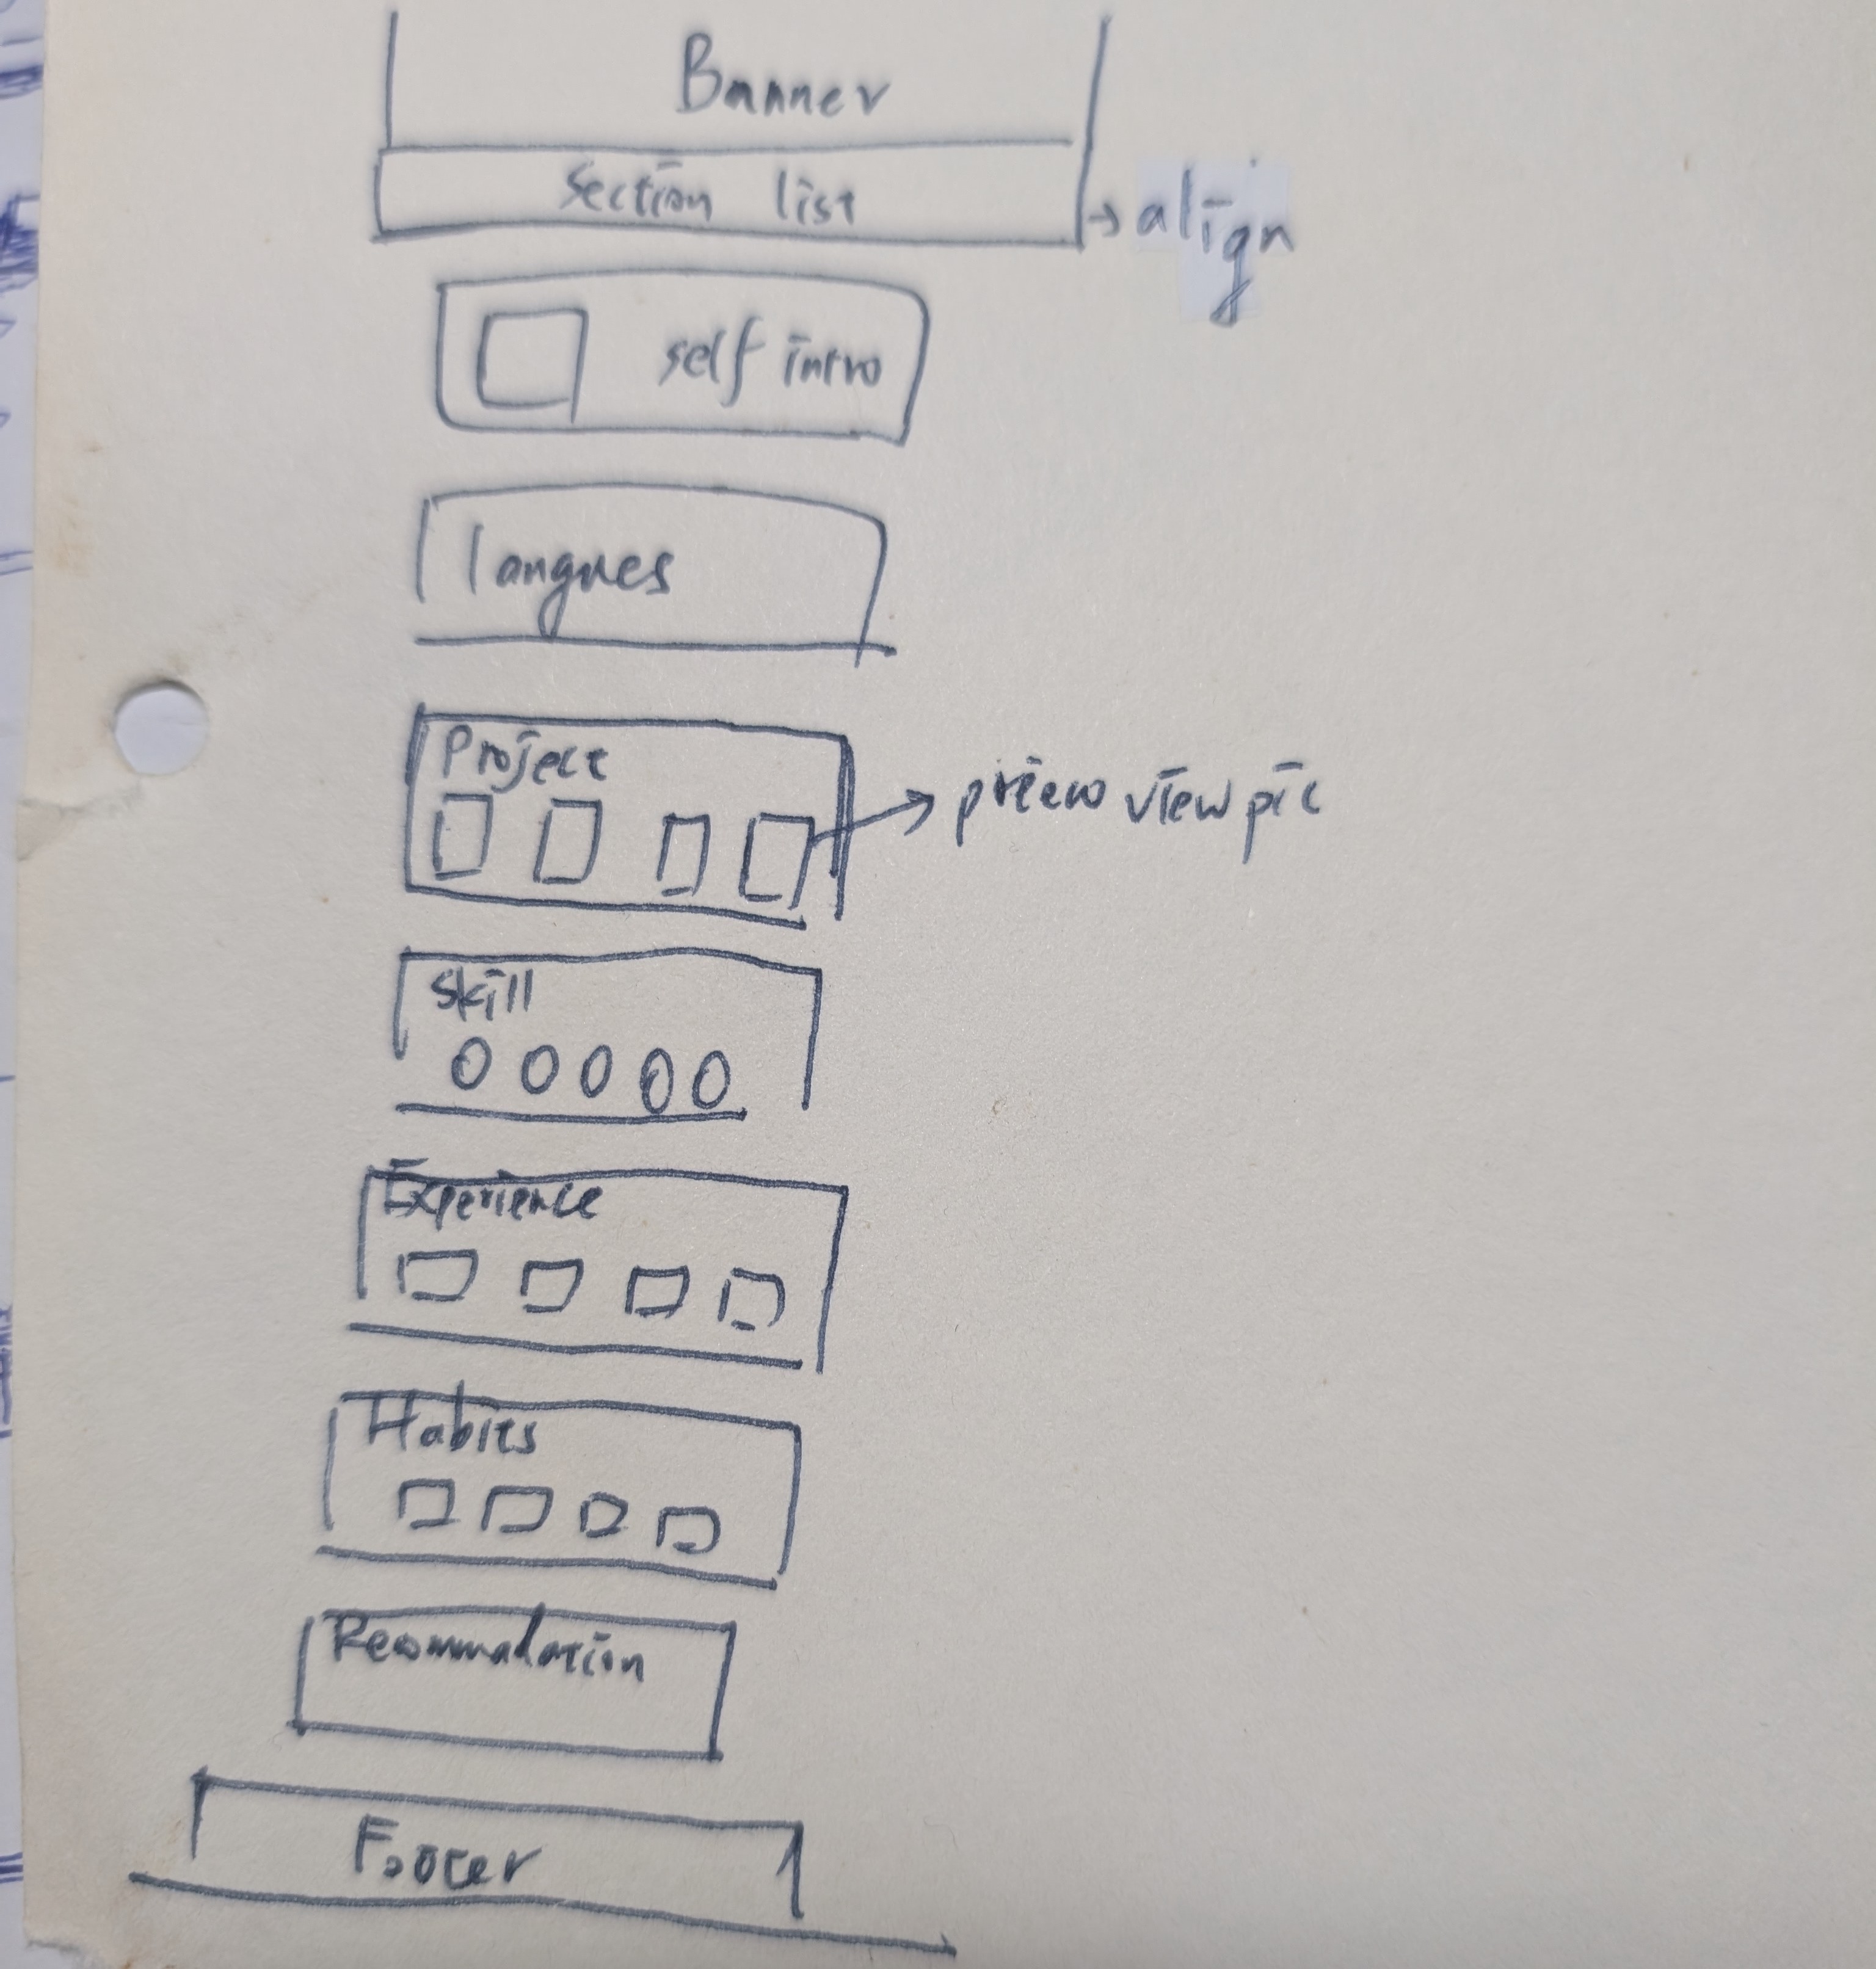 Banner
Section list
→ align
self intro
langues
Project
→ prieew view pic
Skill
Experience
Habits
Recommadation
Footer